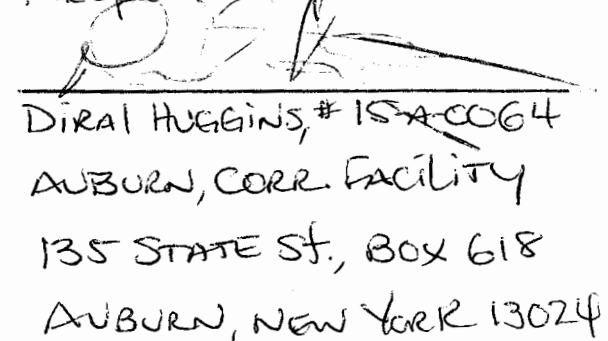 DIRAL HUGGINS, # 15-A-0064
AUBURN, CORR. FACILITY
135 STATE St., BOX 618
AUBURN, NEW YORK 13024